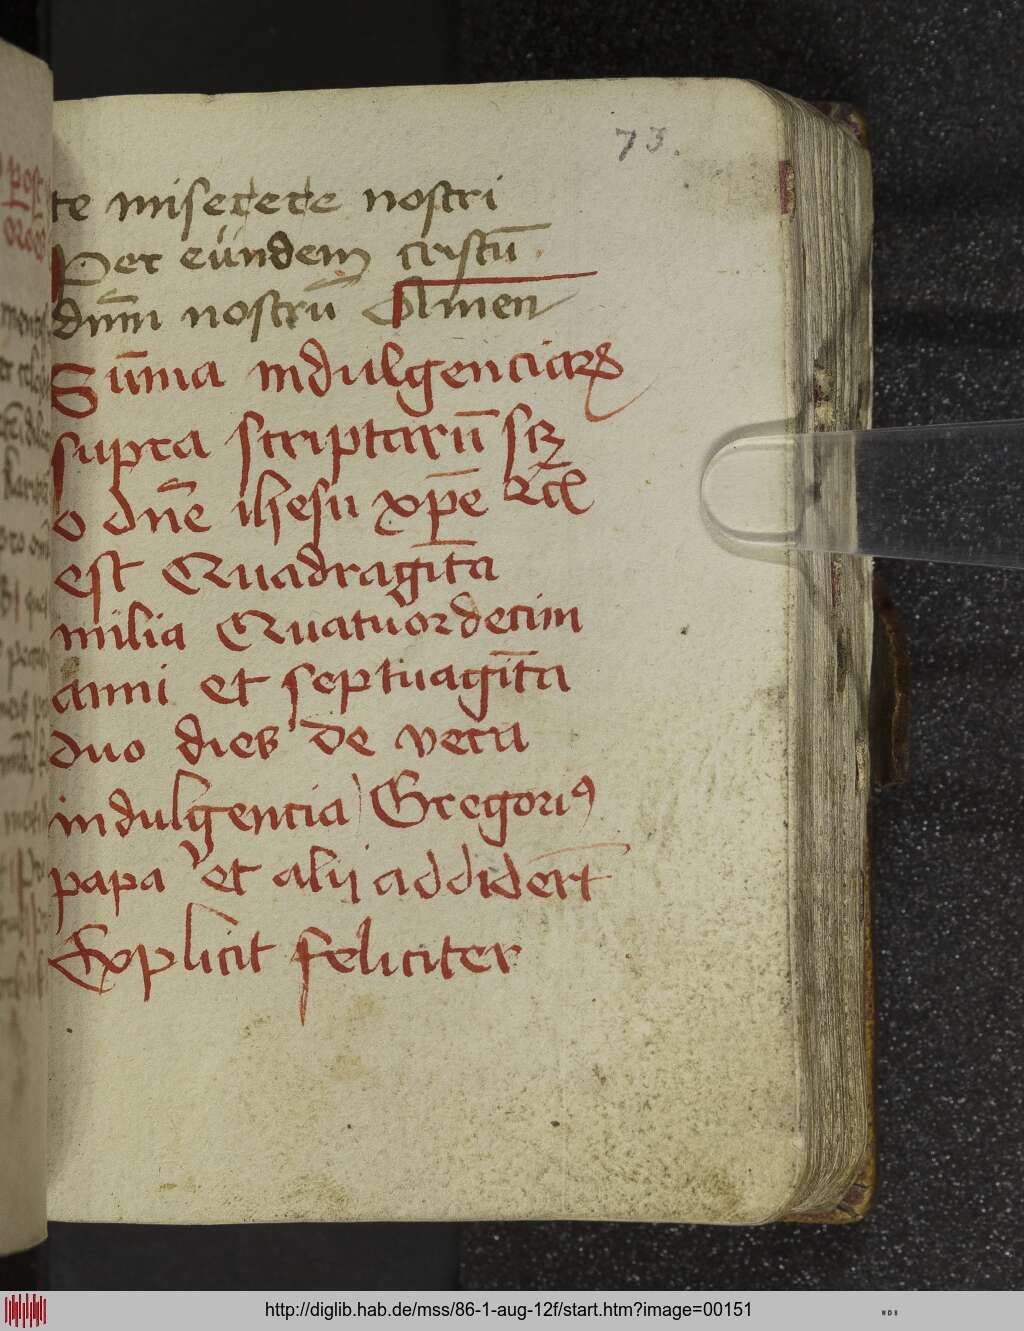 73.
te miserere nostri
Per eundem cristū
dnm̄ nostrū Amen
Sūma indulgenciarꝝ
supra scriptarū scꝫ
o dn̄e ihesu xp̄e ꝛc̄
est Quadragīta
milia Quatuordecim
anni et septuagīta
duo dies de vera
indulgencia Gregoriꝰ
papa et alij addider̄t
Explicit feliciter
http://diglib.hab.de/mss/86-1-aug-12f/start.htm?image=00151